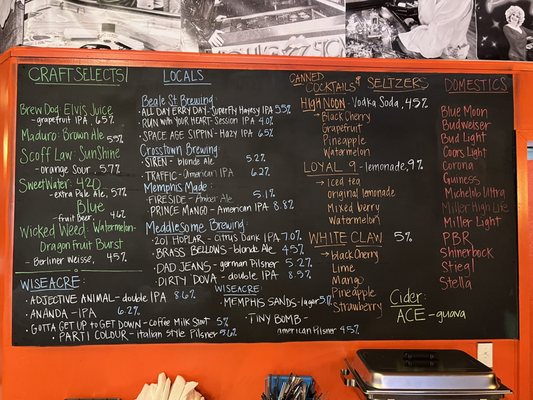 CRAFT SELECTS!
BREW DOG: ELVIS JUICE
- grapefruit IPA 6.5%
MADURO: BROWN ALE 5.5%
SCOFF LAW: SUNSHINE
- orange sour, 5.7%
SWEETWATER: 420
- extra Pale Ale, 5.7%
BLUE
- fruit Beer, 4.6%
WICKED WEED: WATERMELON
DRAGON FRUIT BURST
- Berliner Weisse, 4.5%
WISEACRE:
• ADJECTIVE ANIMAL - double IPA 8.6%
• ANANDA - IPA 6.2%
• GOTTA GET UP TO GET DOWN - Coffee Milk Stout 5%
• PARTI COLOUR - italian Style Pilsner 5.6%
LOCALS
BEALE ST BREWING:
• ALL DAY ERRY DAY - SuperFly Hayesy IPA 5.5%
• RUN WITH YOUR HEART - Session IPA 4.0%
• SPACE AGE SIPPIN - Hazy IPA 6.5%
CROSSTOWN BREWING:
• SIREN - blonde Ale 5.2%
• TRAFFIC - American IPA 6.2%
MEMPHIS MADE:
• FIRESIDE - Amber Ale 5.1%
• PRINCE MANGO - American IPA 8.8%
MEDDLESOME BREWING:
• 201 HOPLAR - Citrus Dank IPA 7.0%
• BRASS BELLOWS - blonde Ale 4.5%
• DAD JEANS - german Pilsner 5.2%
• DIRTY DOVA - double IPA 8.5%
WISEACRE:
• MEMPHIS SANDS - lager 5%
• TINY BOMB -
american Pilsner 4.5%
CANNED
COCKTAILS & SELTZERS
HIGH NOON - Vodka Soda, 4.5%
→ Black Cherry
Grapefruit
Pineapple
Watermelon
LOYAL 9 - lemonade, 9%
→ Iced tea
original lemonade
Mixed berry
Watermelon
WHITE CLAW 5%
→ black Cherry
Lime
Mango
Pineapple
Strawberry
Cider:
ACE - guava
DOMESTICS
Blue Moon
Budweiser
Bud Light
Coors Light
Corona
Guiness
Michelob Ultra
Miller High Life
Miller Light
PBR
Shinerbock
Stiegl
Stella